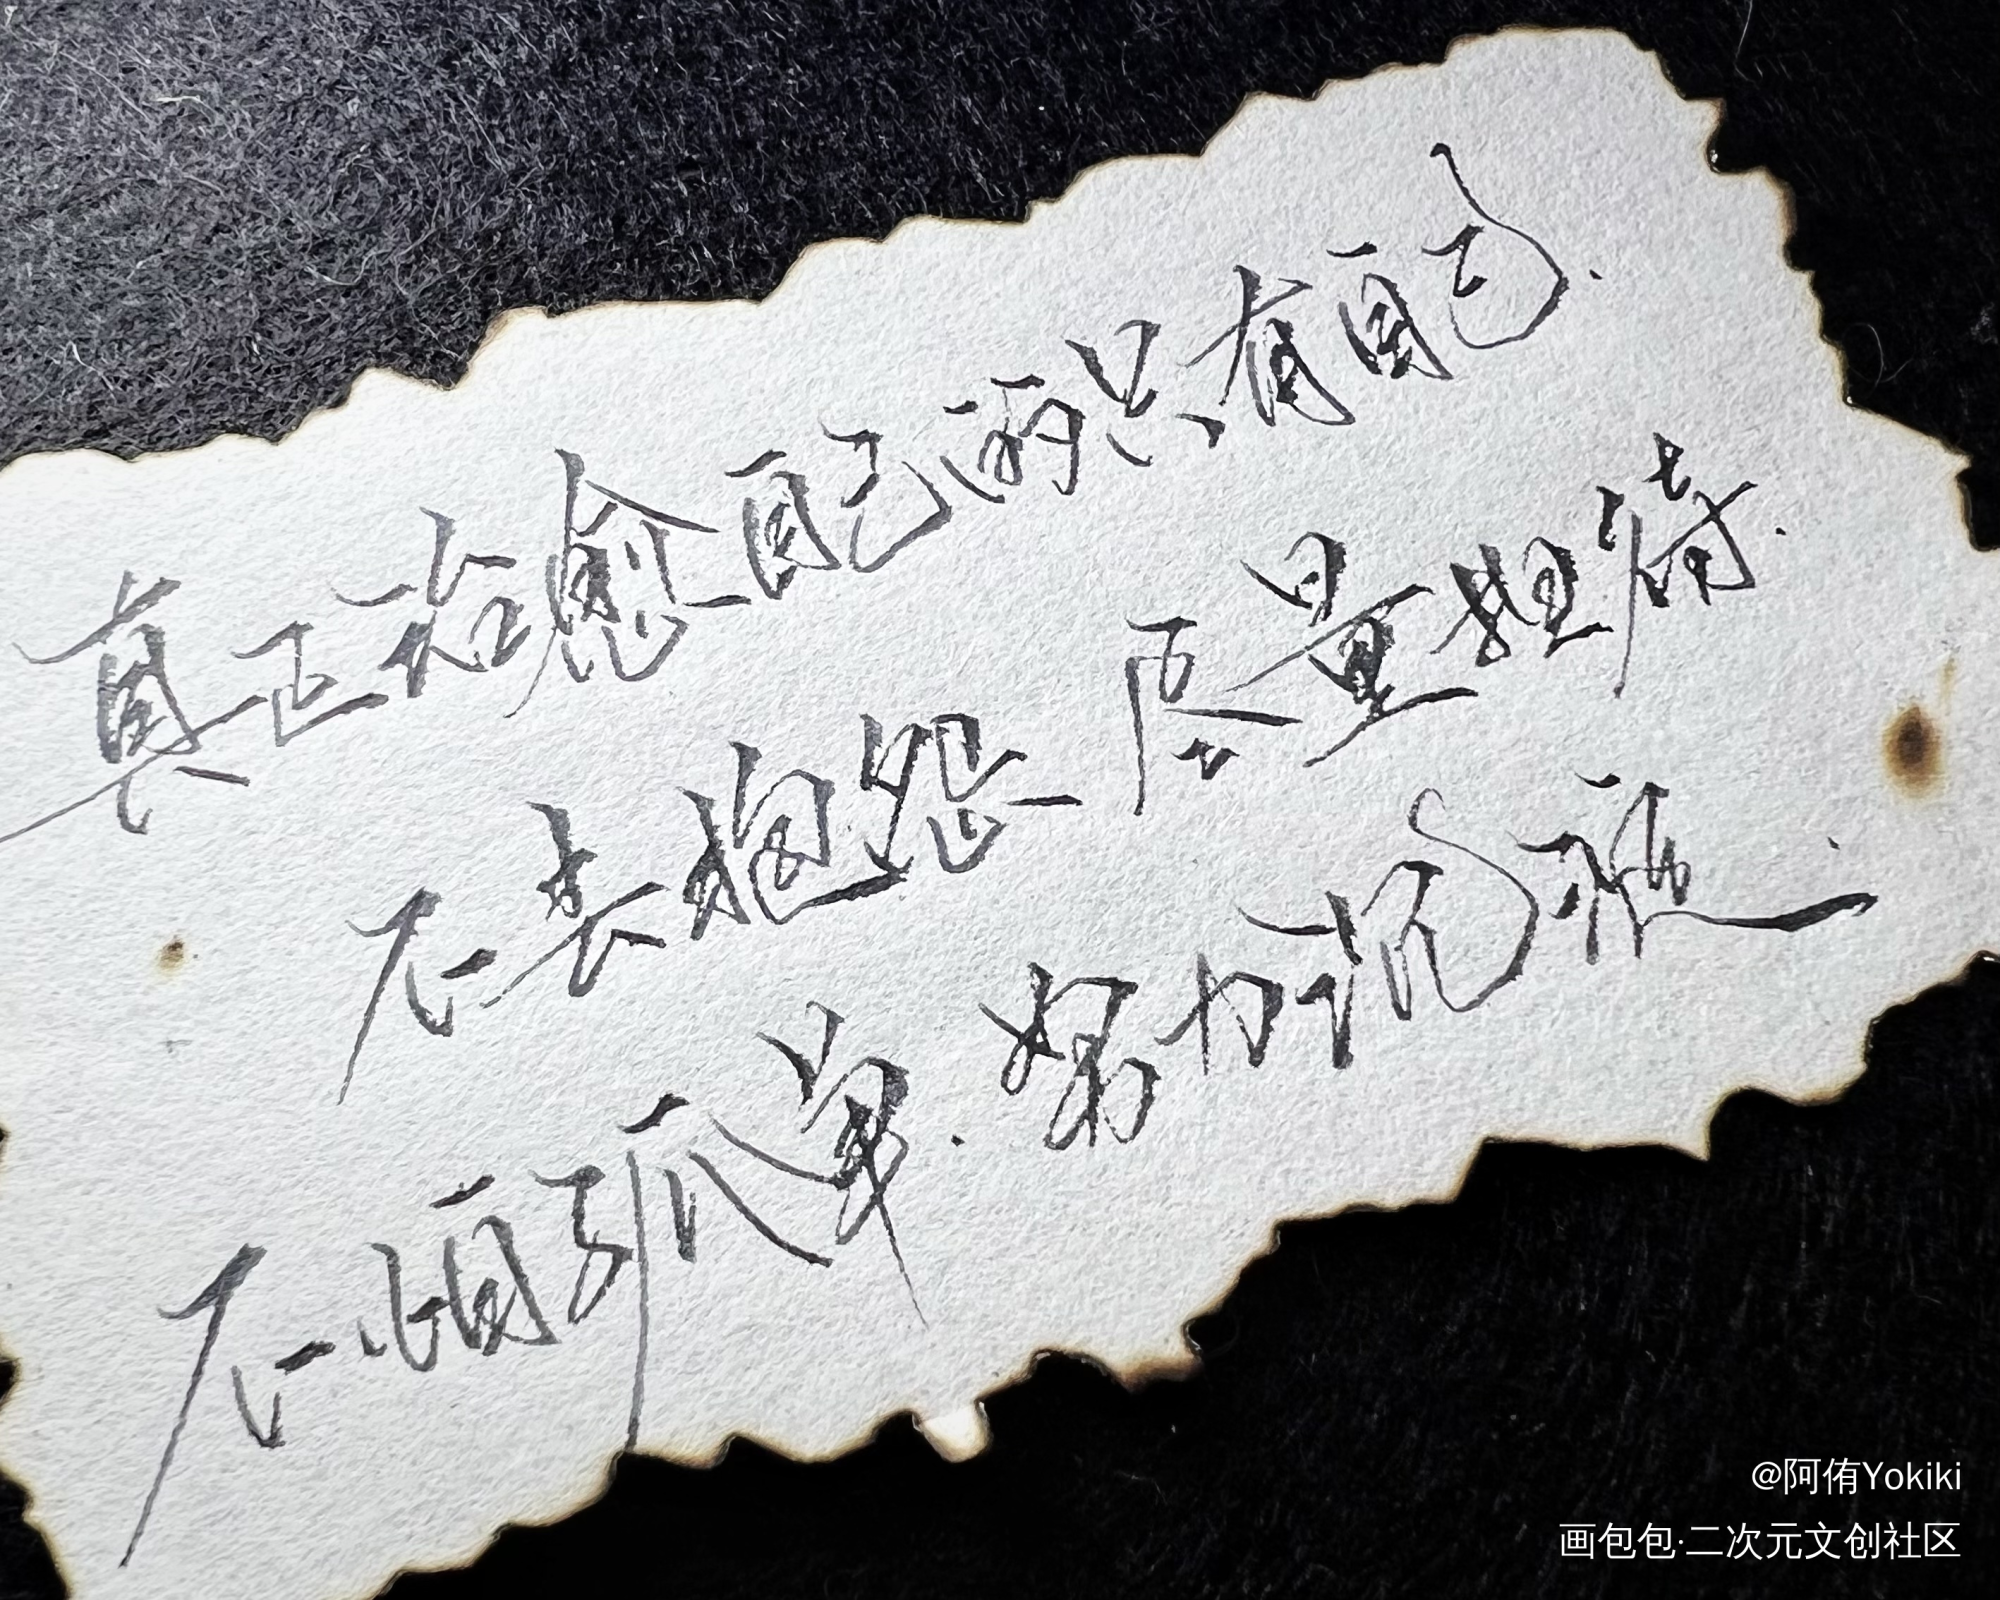 真正治愈自己的只有自己.
不去抱怨 尽量担待.
不怕孤单.努力沉淀.
@阿侑Yokiki
画包包·二次元文创社区